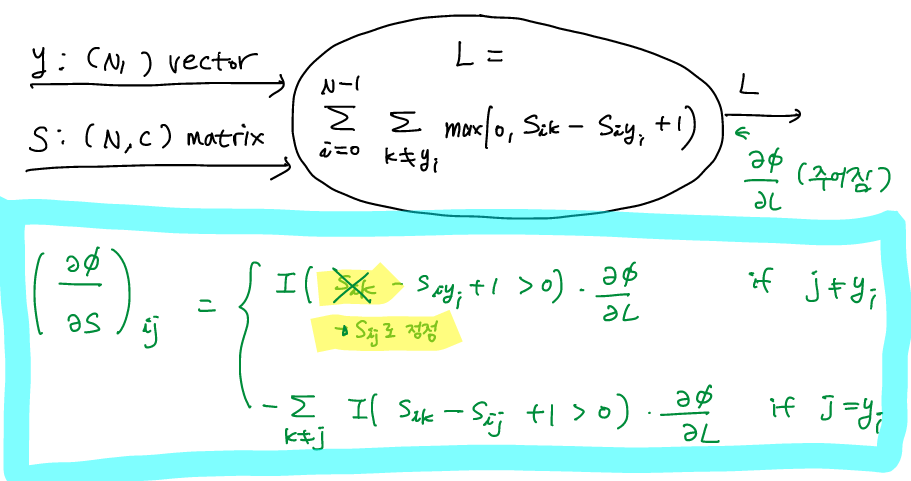 y : (N, ) vector
S : (N, C) matrix
L =
\sum_{i=0}^{N-1} \sum_{k≠y_i} max(0, S_{ik} - S_{iy_i} + 1)
L
∂φ/∂L (주어짐)
(∂φ/∂S)_{ij} = { I( S_{ik} - S_{iy_i} + 1 > 0) · ∂φ/∂L if j ≠ y_i
→ S_{ij}로 정정
- \sum_{k≠j} I( S_{ik} - S_{ij} + 1 > 0) · ∂φ/∂L if j = y_i